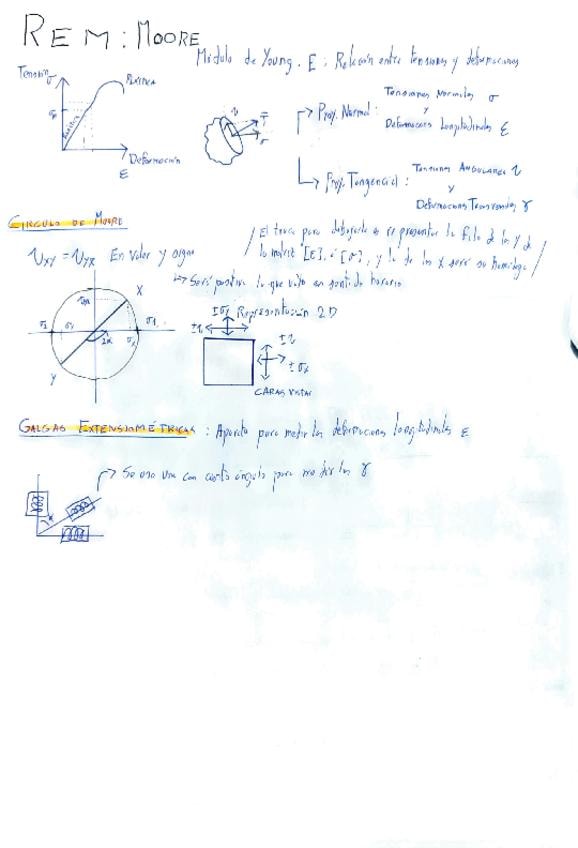 REM: MOORE
Módulo de Young. E: Relación entre tensiones y deformaciones
Tensión σ
PLÁSTICA
Elástica
Deformación
ε
τ
σ
Proy. Normal:
Tensiones Normales σ
y
Deformaciones Longitudinales ε
Proy. Tangencial:
Tensiones ANGULARES τ
y
Deformaciones Transversales γ
CÍRCULO DE MOORE
τxy = τyx En valor y signo
/ El truco para dibujarlo es representar la fila de los y de
la matriz [ε] ó [σ], y la de los x será su homólogo /
Será positiva la que vaya en sentido horario
X
Y
2α
σ1
σx
σ2
Representación 2D
±σy
±τ
±τ
±σx
CARAS VISTAS
GALGAS EXTENSIOMÉTRICAS: Aparato para medir las deformaciones longitudinales ε
Se usa una con cierto ángulo para medir las γ
α